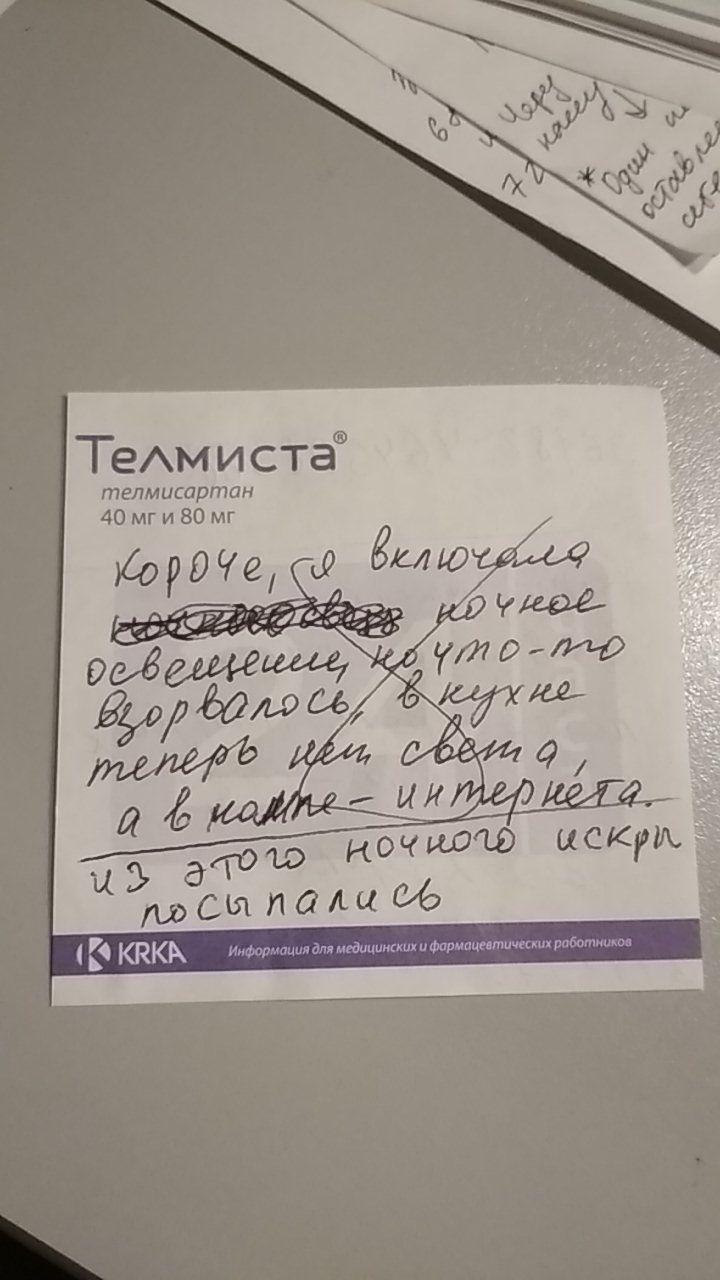 68
и через
72
*Один
Телмиста®
телмисартан
40 мг и 80 мг
короче, я включала
ночное
освещение, но что-то
взорвалось, в кухне
теперь нет света,
а в компе - интернета.
из этого ночного искры
посыпались
KRKA Информация для медицинских и фармацевтических работников